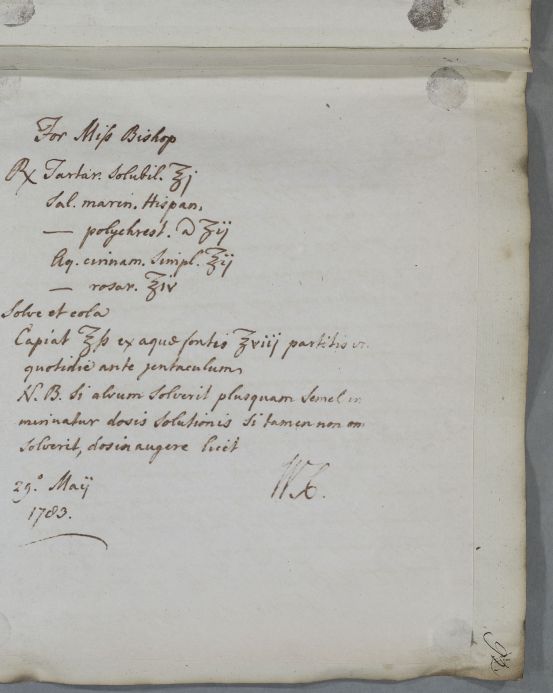 For Miss Bishop
Rx Tartar. Solubil. ℥j
Sal. marin. Hispan.
— polychrest. a ℥ij
Aq. cinnam. Simpl. ℥ij
— rosar. ℥iv
Solve et cola
Capiat ℥ß ex aquæ fontis ℥viij partitis
quotidie ante jentaculum
N. B. Si alvum solverit plusquam semel in
minuatur dosis solutionis si tamen non
solverit, dosin augere licet
29.° Maij
1783.
92